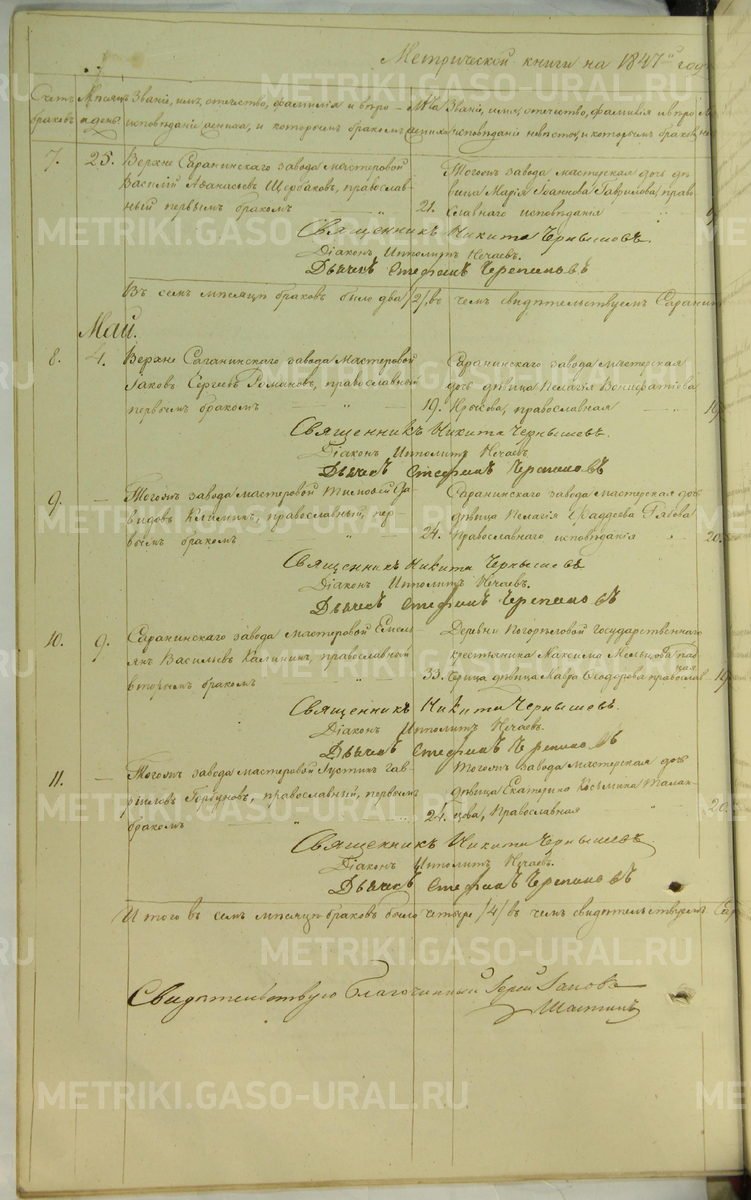 Метрической книги на 1847й годъ
Счетъ браковъ
Мѣсяцъ и день
Званіе, имя, отчество, фамилія и вѣро-
исповѣданіе жениха, и которымъ бракомъ
Званіе, имя, отчество, фамилія и вѣро-
исповѣданіе невѣсты, и которымъ бракомъ
7. 25. Верхне Саранинскаго завода мастеровой
Василій Аѳанасьевъ Щербаковъ, православ-
ный первымъ бракомъ 21.
Тогожъ завода мастерская дочь дѣ-
вица Марія Іоаннова Гаврилова, право-
славнаго исповѣданія
Священникъ Никита Чернышовъ.
Діаконъ Ипполитъ Нечаевъ.
Дьячекъ Стефанъ Черепановъ
Въ семъ мѣсяцѣ браковъ было два /2/, въ чемъ свидѣтельствуемъ Саранин
Май.
8. 4. Верхне Саранинскаго завода мастеровой
Іаковъ Сергеевъ Романовъ, православный
первымъ бракомъ 19.
Саранинскаго завода мастерская
дочь дѣвица Пелагія Вонифатіева
православная
Священникъ Никита Чернышевъ.
Діаконъ Ипполитъ Нечаевъ
Дьячекъ Стефанъ Черепановъ
9. — Тогожъ завода мастеровой Тимофей Да-
видовъ Климинъ, православный, пер-
вымъ бракомъ 24.
Саранинскаго завода мастерская дочь
дѣвица Пелагія Фаддеева
Православнаго исповѣданія 20.
Священникъ Никита Чернышевъ
Діаконъ Ипполитъ Нечаевъ.
Дьячекъ Стефанъ Черепановъ
10. 9. Саранинскаго завода мастеровой Емель
янъ Васильевъ Калининъ, православный
вторымъ бракомъ 33.
Деревни Погорѣловой государственнаго
крестьянина Максима Мельцова пад-
черица дѣвица Мавра Ѳеодорова православ
ная 19
Священникъ Никита Чернышевъ.
Діаконъ Ипполитъ Нечаевъ.
Дьячекъ Стефанъ Черепановъ
11. — Тогожъ завода мастеровой Іустинъ Гав-
риловъ Горбуновъ, православный, первымъ
бракомъ 24.
Тогожъ завода мастерская дочь
дѣвица Екатерина Косьмина Талан-
цова, Православная 20.
Священникъ Никита Чернышевъ
Діаконъ Ипполитъ Нечаевъ.
Дьячекъ Стефанъ Черепановъ
И того въ семъ мѣсяцѣ браковъ было четыре /4/ въ чемъ свидѣтельствуемъ Сар
Свидѣтельствую Благочинный Іерей Іаковъ
Шастинъ
METRIKI.GASO-URAL.RU